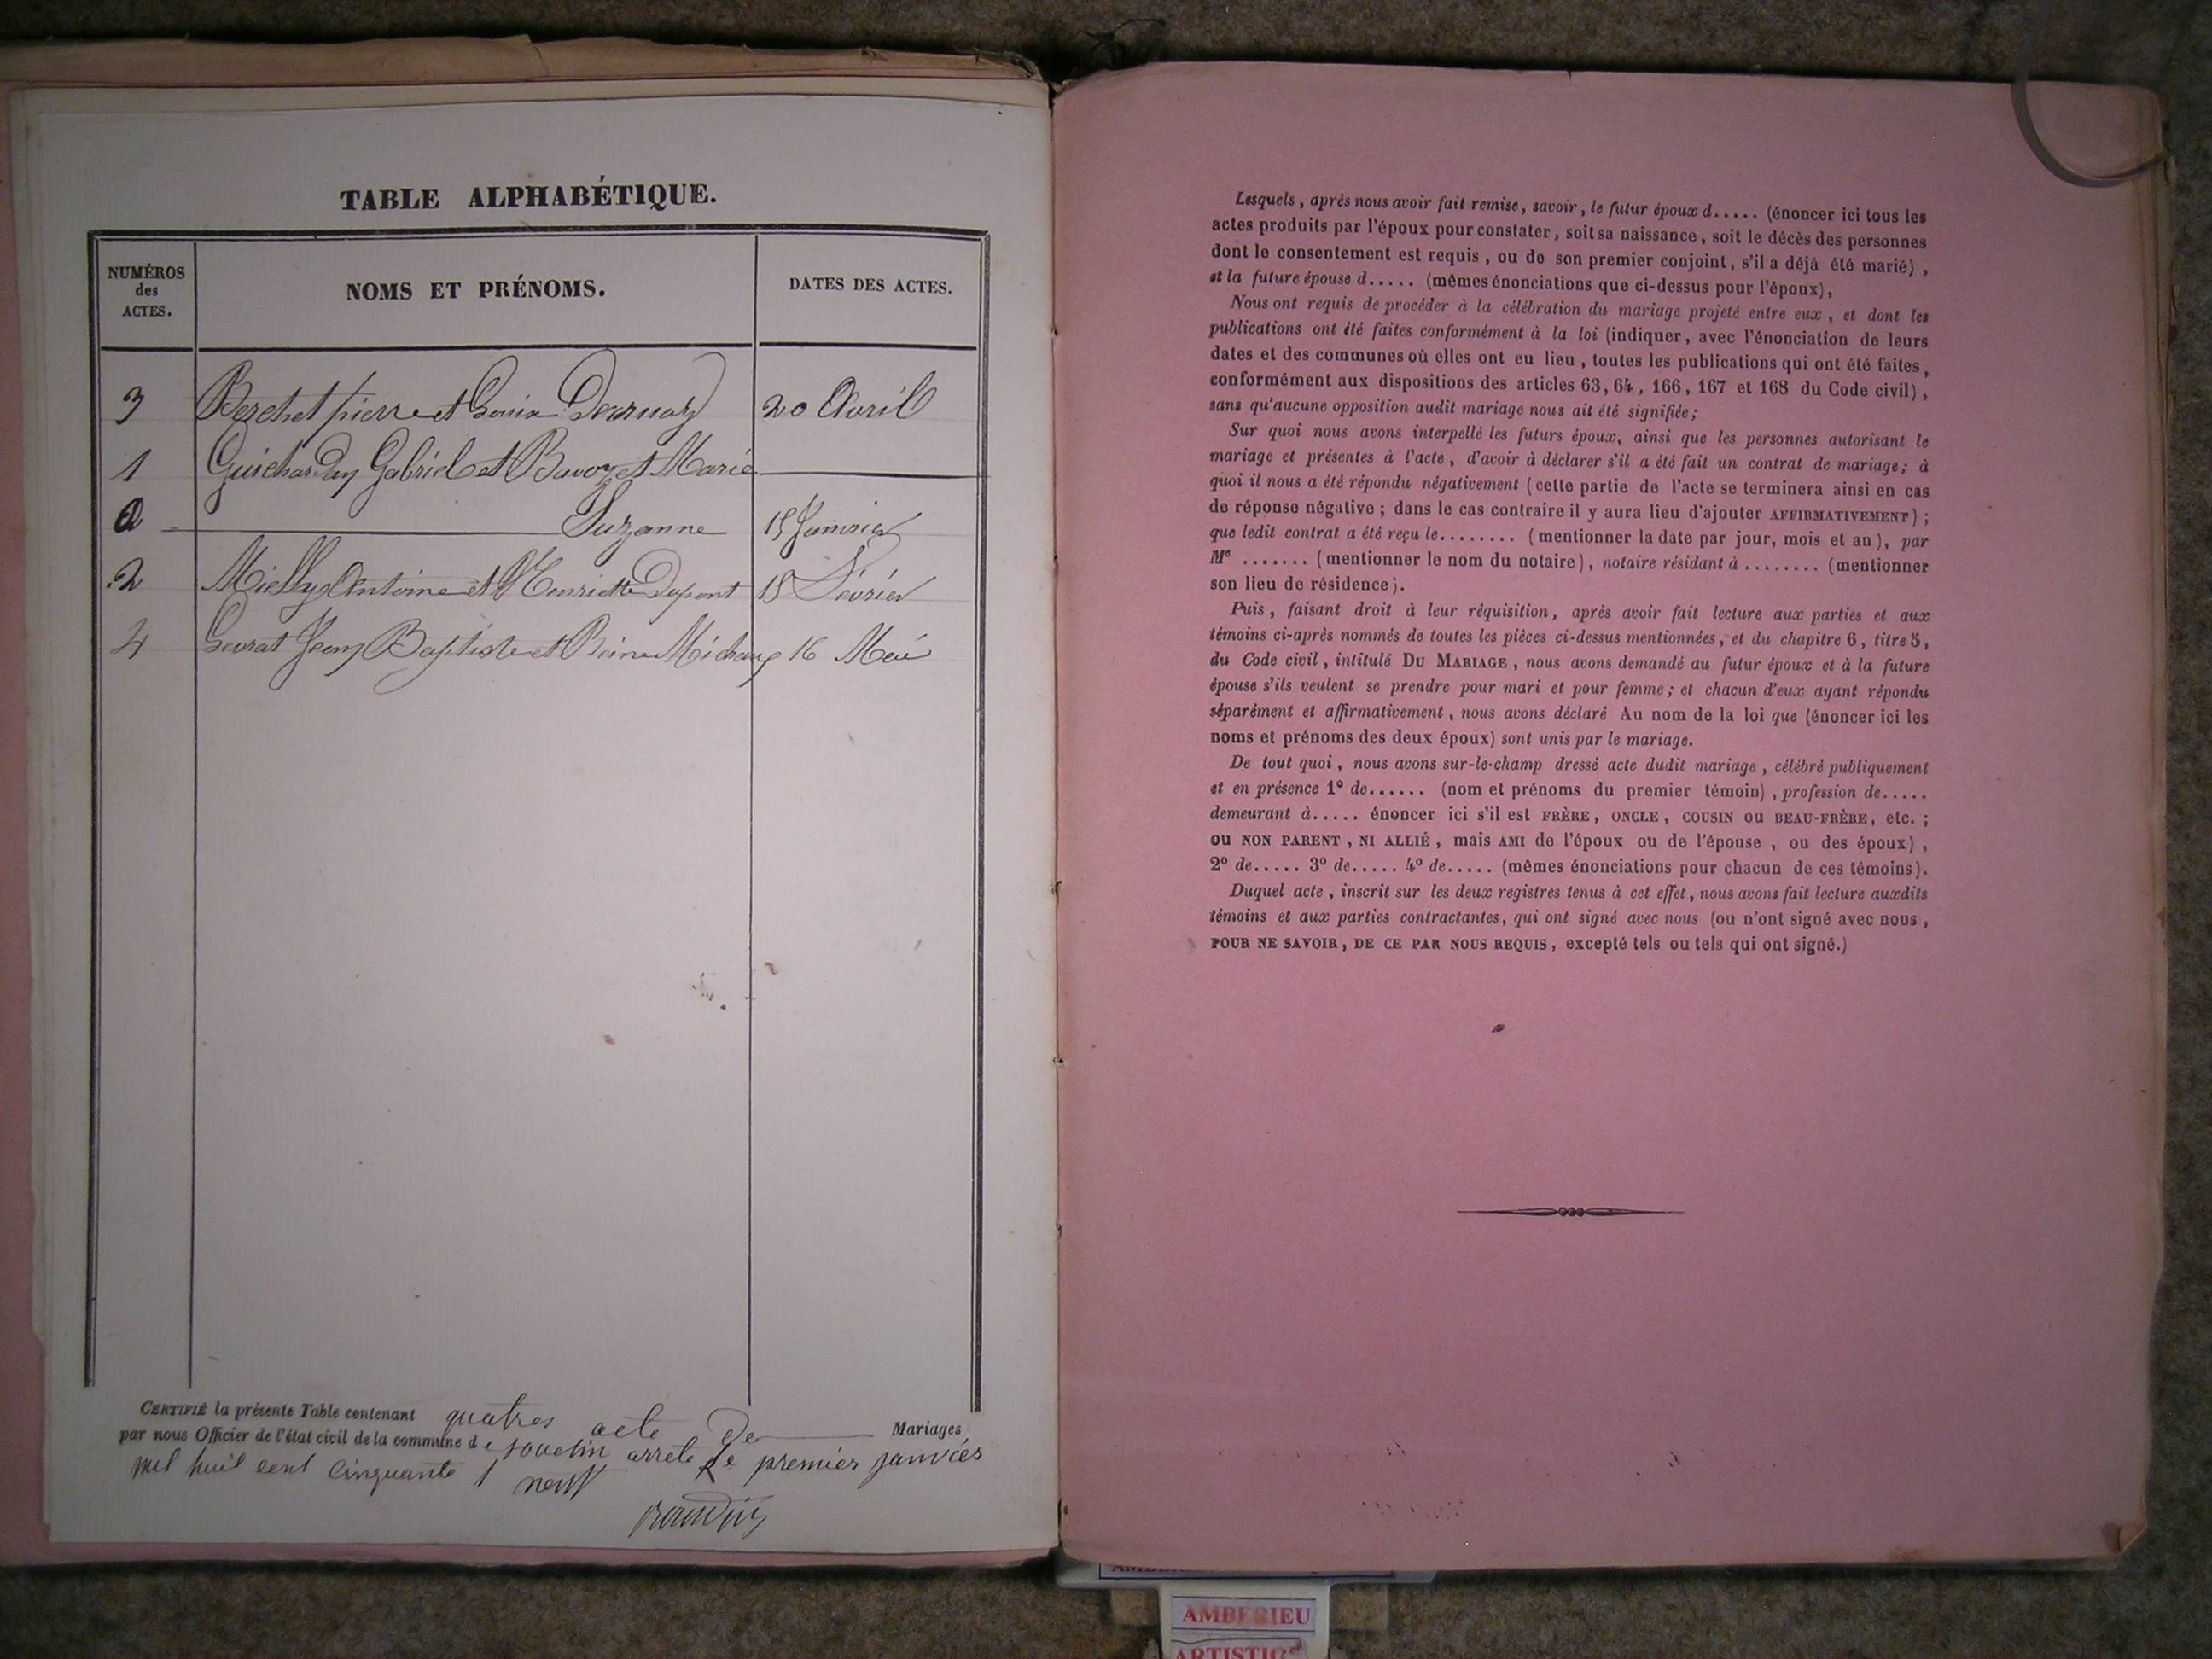 TABLE ALPHABÉTIQUE.
NUMÉROS
des
ACTES.
NOMS ET PRÉNOMS.
DATES DES ACTES.
3 Berchet pierre et 20 Avril
1 Guichardan Gabriel et Bavozet Marie
Suzanne 15 Janvier
2 Antoine et Henriette Dupont 15 Février
4 Jean Baptiste et Reine Michaux 16 Mai
CERTIFIÉ la présente Table contenant quatres acte De Mariages
par nous Officier de l'état civil de la commune de souclin arrete le premier janvier
mil huit cent cinquante neuf
Lesquels, après nous avoir fait remise, savoir, le futur époux d..... (énoncer ici tous les
actes produits par l'époux pour constater, soit sa naissance, soit le décès des personnes
dont le consentement est requis, ou de son premier conjoint, s'il a déjà été marié),
et la future épouse d..... (mêmes énonciations que ci-dessus pour l'époux),
Nous ont requis de procéder à la célébration du mariage projeté entre eux, et dont les
publications ont été faites conformément à la loi (indiquer, avec l'énonciation de leurs
dates et des communes où elles ont eu lieu, toutes les publications qui ont été faites,
conformément aux dispositions des articles 63, 64, 166, 167 et 168 du Code civil),
sans qu'aucune opposition audit mariage nous ait été signifiée;
Sur quoi nous avons interpellé les futurs époux, ainsi que les personnes autorisant le
mariage et présentes à l'acte, d'avoir à déclarer s'il a été fait un contrat de mariage; à
quoi il nous a été répondu négativement (cette partie de l'acte se terminera ainsi en cas
de réponse négative; dans le cas contraire il y aura lieu d'ajouter AFFIRMATIVEMENT);
que ledit contrat a été reçu le........ (mentionner la date par jour, mois et an), par
Me ....... (mentionner le nom du notaire), notaire résidant à ........ (mentionner
son lieu de résidence).
Puis, faisant droit à leur réquisition, après avoir fait lecture aux parties et aux
témoins ci-après nommés de toutes les pièces ci-dessus mentionnées, et du chapitre 6, titre 5,
du Code civil, intitulé DU MARIAGE, nous avons demandé au futur époux et à la future
épouse s'ils veulent se prendre pour mari et pour femme; et chacun d'eux ayant répondu
séparément et affirmativement, nous avons déclaré Au nom de la loi que (énoncer ici les
noms et prénoms des deux époux) sont unis par le mariage.
De tout quoi, nous avons sur-le-champ dressé acte dudit mariage, célébré publiquement
et en présence 1° de...... (nom et prénoms du premier témoin), profession de.....
demeurant à..... énoncer ici s'il est FRÈRE, ONCLE, COUSIN ou BEAU-FRÈRE, etc.;
ou NON PARENT, NI ALLIÉ, mais AMI de l'époux ou de l'épouse, ou des époux),
2° de..... 3° de..... 4° de..... (mêmes énonciations pour chacun de ces témoins).
Duquel acte, inscrit sur les deux registres tenus à cet effet, nous avons fait lecture auxdits
témoins et aux parties contractantes, qui ont signé avec nous (ou n'ont signé avec nous,
POUR NE SAVOIR, DE CE PAR NOUS REQUIS, excepté tels ou tels qui ont signé.)
AMBERIEU